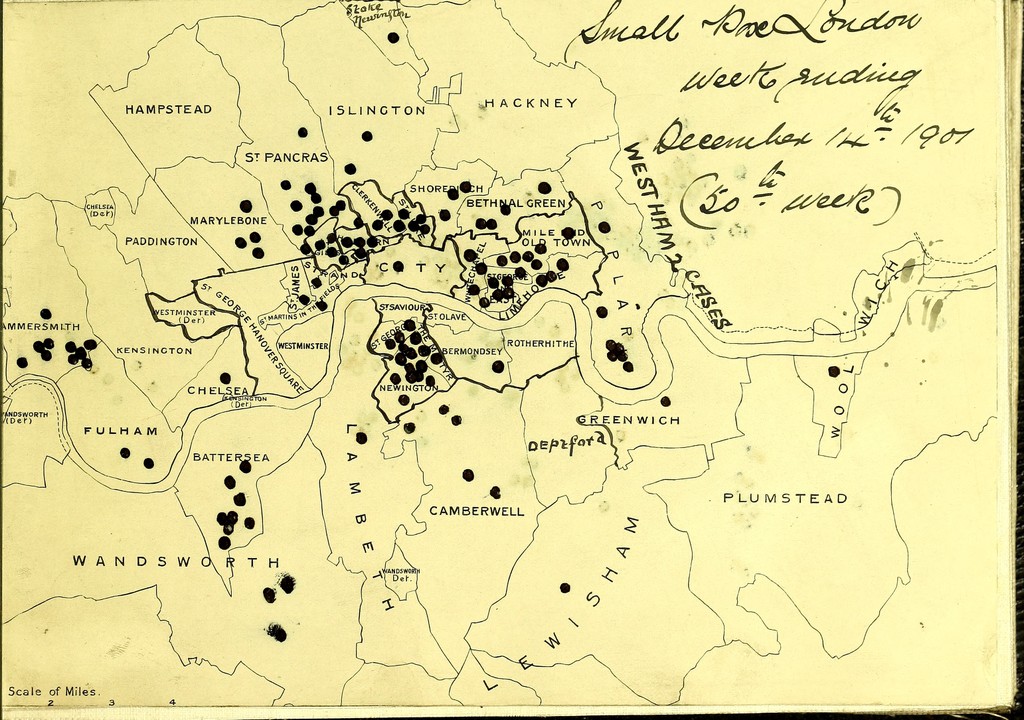 Stoke
Newington
Small Pox London
week ending
December 14th 1901
(50th week)
HAMPSTEAD
ISLINGTON
HACKNEY
ST PANCRAS
WEST HAM 2 CASES
CLERKENWELL
SHOREDITCH
BETHNAL GREEN
CHELSEA
(Det)
MARYLEBONE
PADDINGTON
MILE END
OLD TOWN
POPLAR
WHITECHAPEL
CITY
STRAND
ST JAMES
ST GEORGE
EAST
LIMEHOUSE
WOOLWICH
ST GEORGE HANOVER SQUARE
ST MARTINS IN THE FIELDS
WESTMINSTER
(Det)
ST SAVIOUR
ST OLAVE
ST GEORGE THE MARTYR
AMMERSMITH
KENSINGTON
WESTMINSTER
BERMONDSEY
ROTHERHITHE
CHELSEA
KENSINGTON
(Det)
NEWINGTON
WANDSWORTH
(Det)
FULHAM
GREENWICH
DEPTFORD
BATTERSEA
LAMBETH
CAMBERWELL
PLUMSTEAD
WANDSWORTH
WANDSWORTH
Det.
LEWISHAM
Scale of Miles.
2 3 4